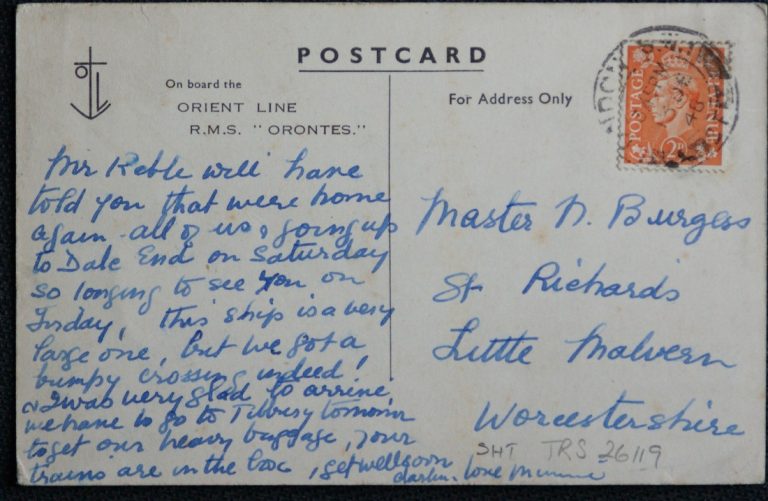 POSTCARD
On board the
ORIENT LINE
R.M.S. "ORONTES."
For Address Only
POSTAGE
2D
Mr Keble will have
told you that were home
again - all of us & going up
to Dale End on Saturday
so longing to see you on
this ship is a very
large one, but we got a
bumpy crossing indeed!
& I was very glad to arrive,
we have to go to Tilbury tomorrow
to get our heavy baggage, your
trains are in the box, get well soon
darling love
Master N. Burgess
St Richards
Little Malvern
Worcestershire
SHT TRS 26119